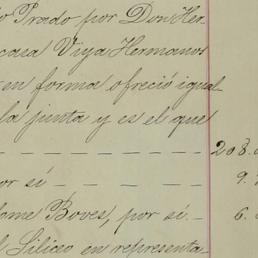 do Prado por Don Her-
casa Viya Hermanos
en forma ofreció igual
la junta y es el que
208.
or sí 9.
lome Boves, por sí 6.
l Siliceo en representa-